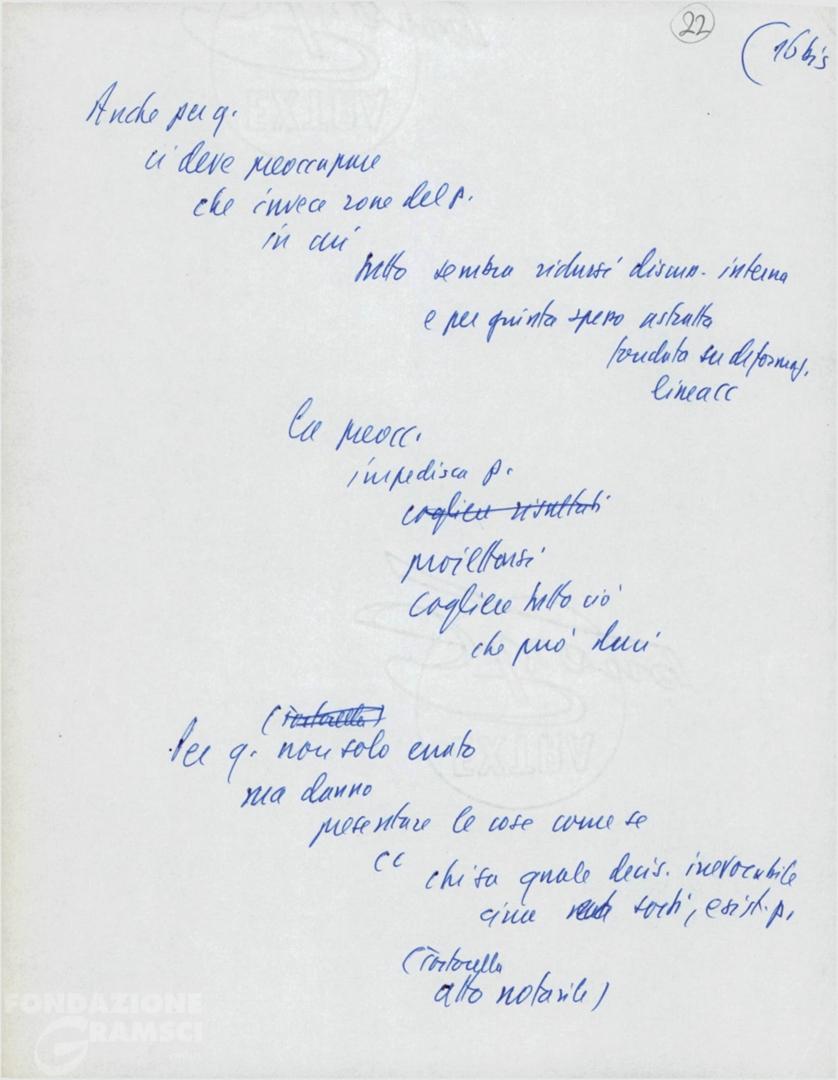 22
(16 bis
Anche per q.
ci deve preoccupare
che invece zone del p.
in cui
tutto sembra ridursi discuss. interna
e per giunta spesso astratta
fondata su deformaz.
lineacc
Ce preocc.
impedisca p.
cogliere risultati
proiettarsi
cogliere tutto ciò
che può darci
(Tortorella)
Per q. non solo errato
ma danno
presentare le cose come se
CC
chissa quale decis. irrevocabile
circa sorti, esist. p.
(Tortorella
atto notarile)
FONDAZIONE
GRAMSCI
EXTRA
EXTRA